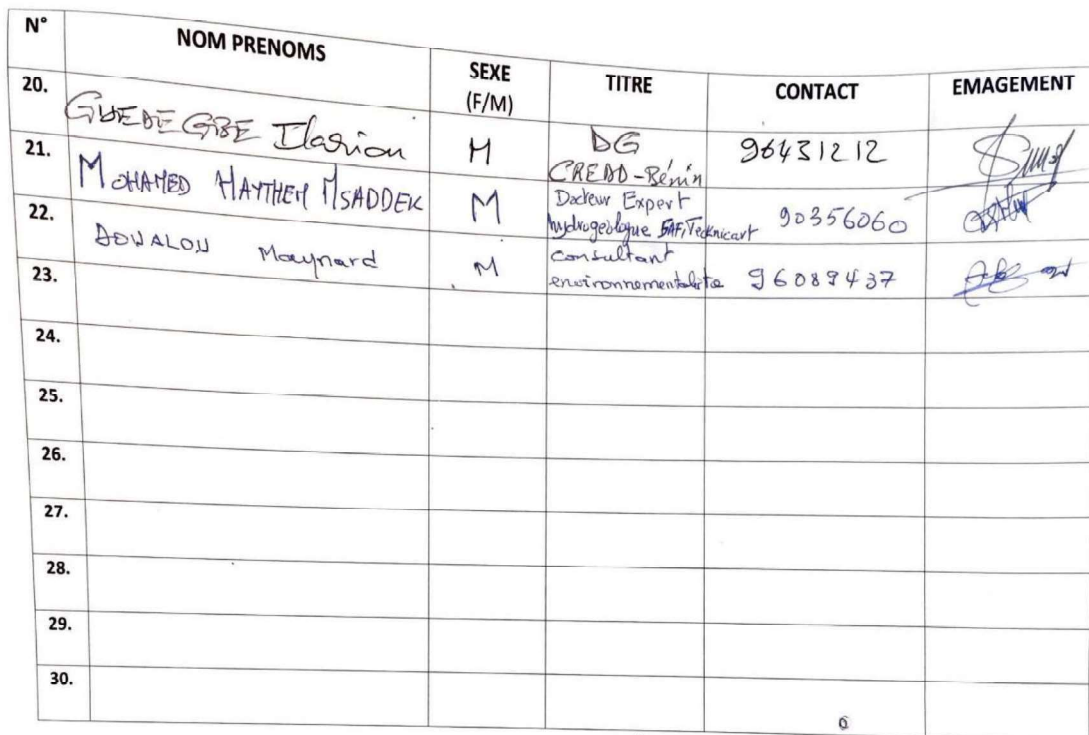 N° NOM PRENOMS SEXE (F/M) TITRE CONTACT EMAGEMENT
20. GBEDE GBE Ilarion M DG CREDD-Bénin 96431212
21. MOHAMED HAYTHEM MSADDEK M Docteur Expert hydrogéologue SAFI, Technicart 90356060
22. Maynard M consultant environnementaliste 96089437
23.
24.
25.
26.
27.
28.
29.
30.
6